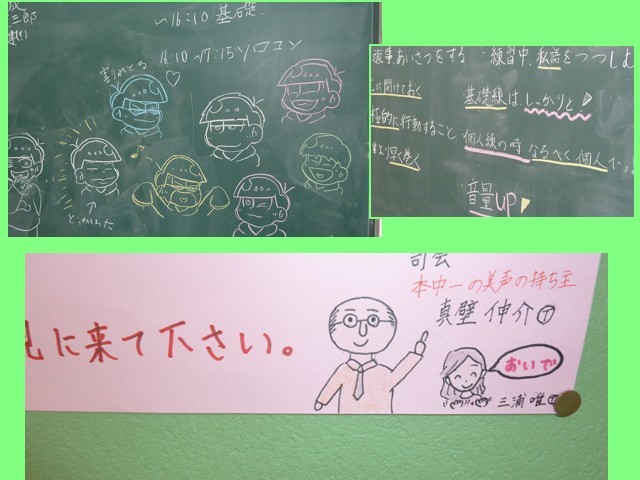 〜16:10 基礎
16:10〜17:15 ソロコン
割れてる
返事、あいさつをする
・練習中、私語をつつしむ
に開けておく
基礎練は、しっかりと
極的に行動すること
個人練の時 なるべく個人で
より早く巻く
音量UP
司会
本中一の美声の持ち主
真壁 伸介
に来て下さい。
おいで
三浦 唯